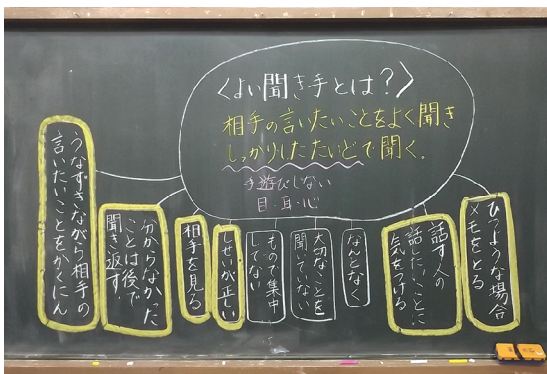 〈よい聞き手とは?〉
相手の言いたいことをよく聞き
しっかりしたたいどで聞く。
手遊びしない
目・耳・心
ひつような場合
メモをとる
話す人の
話したいことに
気をつける
なんとなく
大切なことを
聞いていない
もので集中
してない
しせいが正しい
相手を見る
分からなかった
ことは後で
聞き返す!
うなずきながら相手の
言いたいことをかくにん